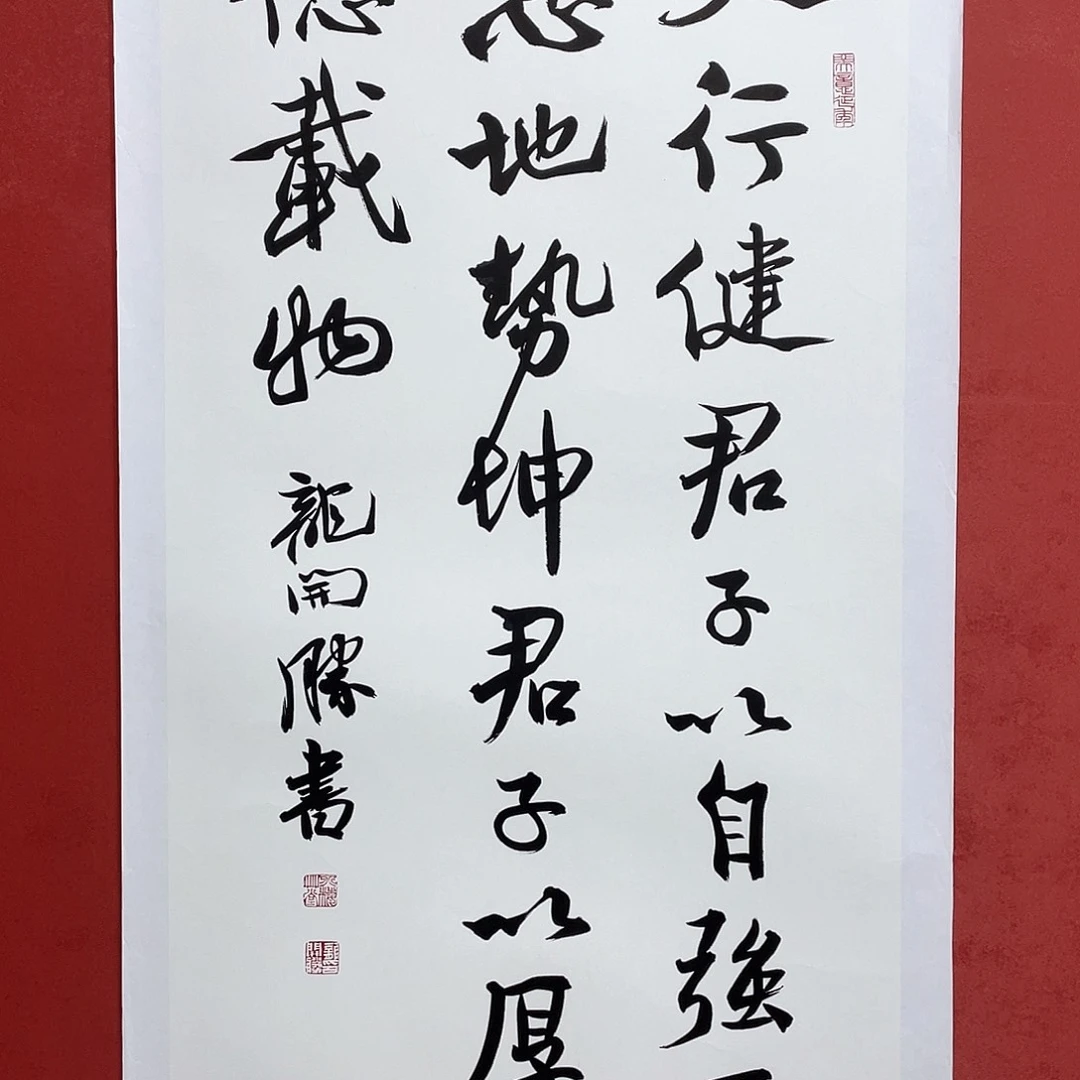 天行健君子以自強不
息地勢坤君子以厚
德載物 龍開勝書